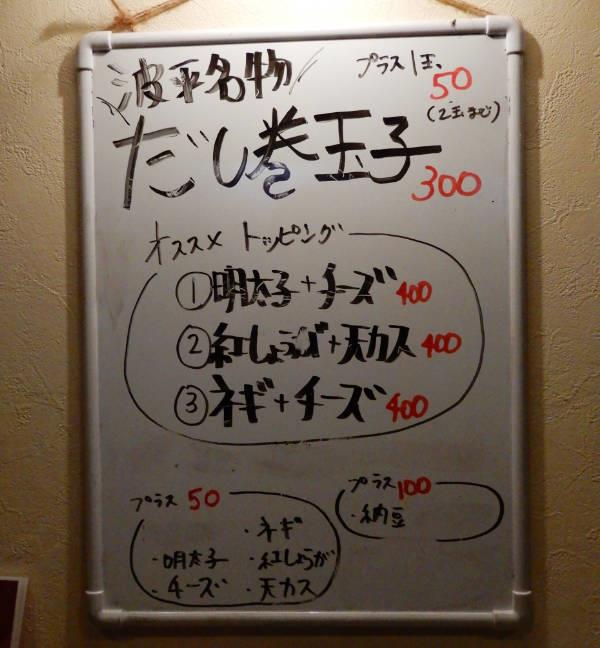 波平名物
プラス1玉、50
(2玉まで)
だし巻玉子 300
オススメ トッピング
①明太子+チーズ 400
②紅しょうが+天カス 400
③ネギ+チーズ 400
プラス 50
・ネギ
・明太子 ・紅しょうが
・チーズ ・天カス
プラス 100
・納豆